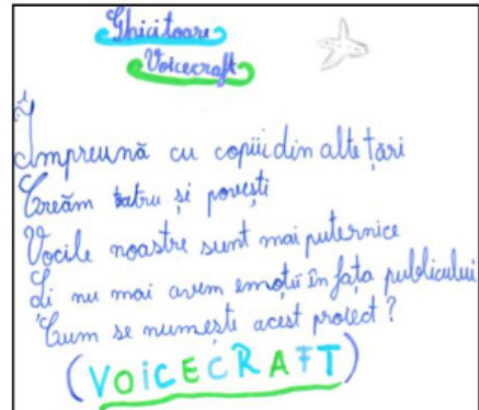 Ghicitoare
Voicecraft
Împreună cu copiii din alte țări
Creăm tatru și povești
Vocile noastre sunt mai puternice
Și nu mai avem emoții în fața publicului
Cum se numește acest proiect?
(VOICECRAFT)